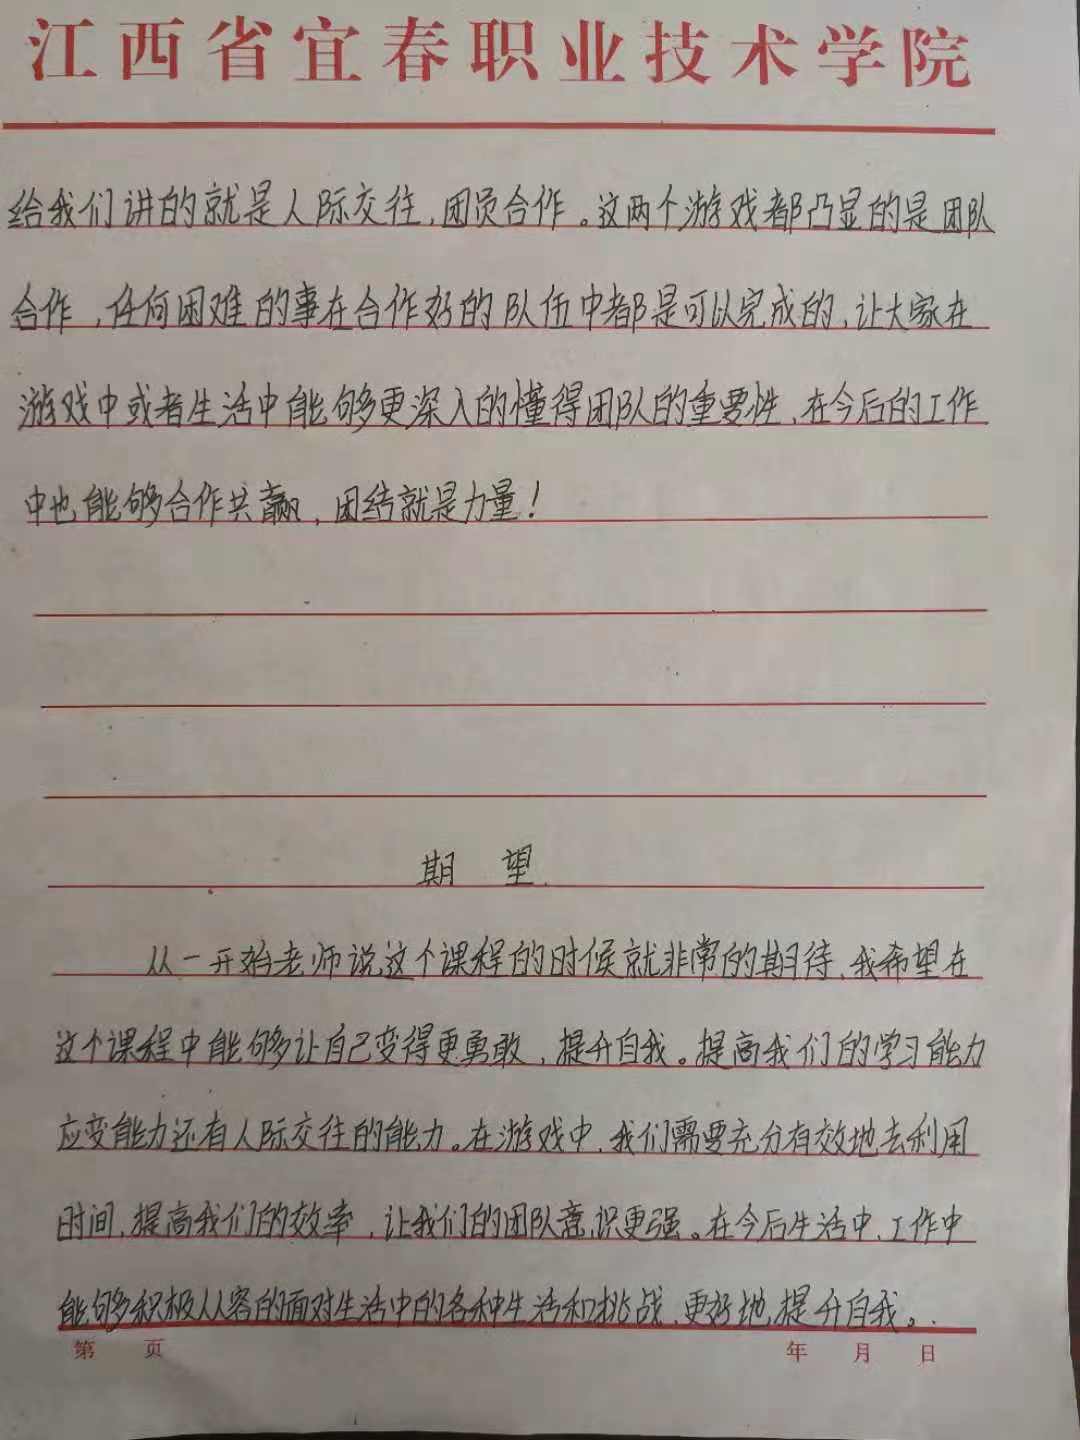 江西省宜春职业技术学院
给我们讲的就是人际交往,团员合作。这两个游戏都凸显的是团队
合作,任何困难的事在合作好的队伍中都是可以完成的,让大家在
游戏中或者生活中能够更深入的懂得团队的重要性,在今后的工作
中也能够合作共赢,团结就是力量!
期 望
从一开始老师说这个课程的时候就非常的期待,我希望在
这个课程中能够让自己变得更勇敢,提升自我。提高我们的学习能力
应变能力还有人际交往的能力。在游戏中,我们需要充分有效地去利用
时间,提高我们的效率,让我们的团队意识更强。在今后生活中,工作中
能够积极从容的面对生活中的各种生活和挑战,更好地提升自我。
第 页 年 月 日